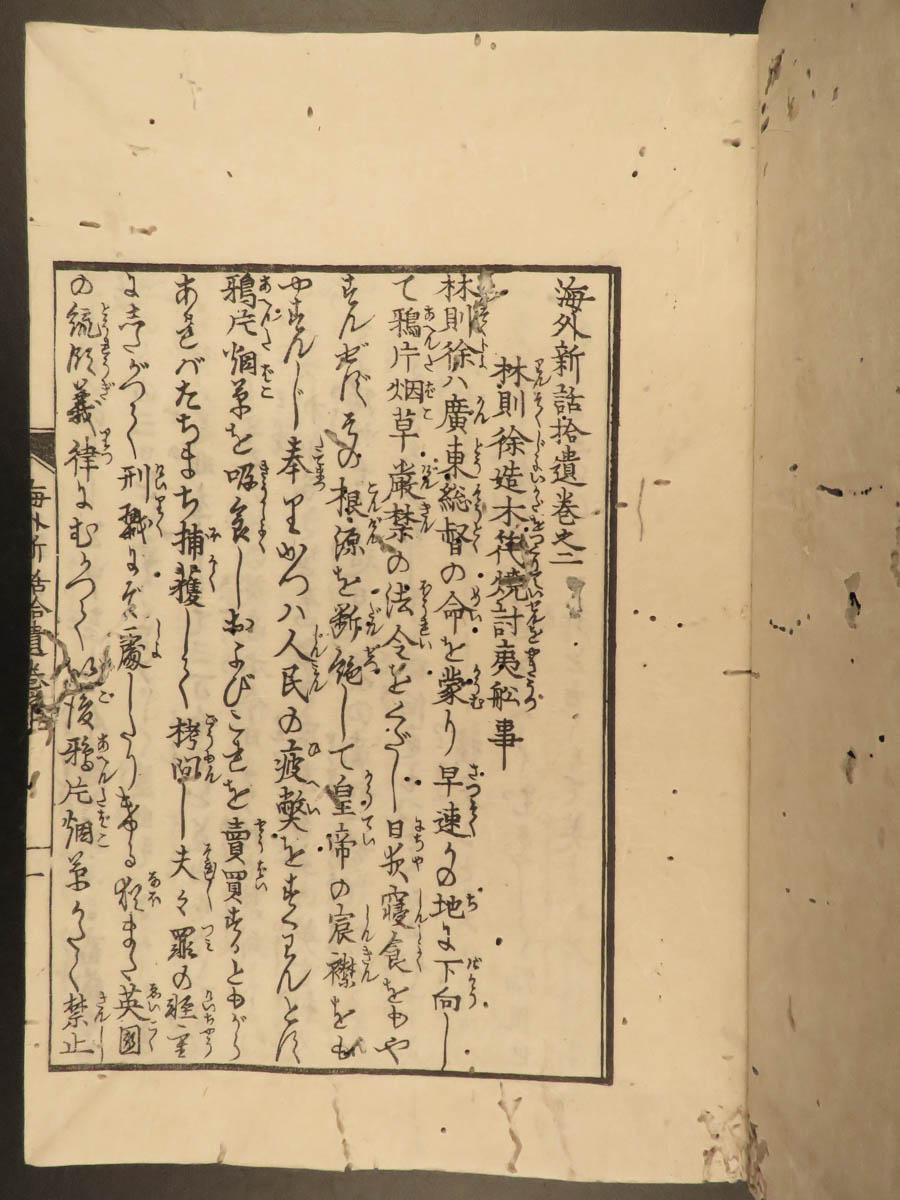 海外新話拾遺巻之二
林則徐造木筏焼討夷舩事
林則徐ハ廣東総督の命を蒙り早速かの地に下向し
て鴉片烟草嚴禁の法令をくだし日夜寝食をもや
すんぜずその根源を断絶して皇帝の宸襟をも
やすんじ奉り且つハ人民の疲弊をすくわんとす
鴉片烟草を吸食しおよびこれを賣買するともがら
あれバたちまち捕獲しく拷問し夫々罪の軽重
にしたがつく刑戮にぞ處したりける猶また英國
の統領義律にむかつく以後鴉片烟草かたく禁止
海外新話拾遺巻
一